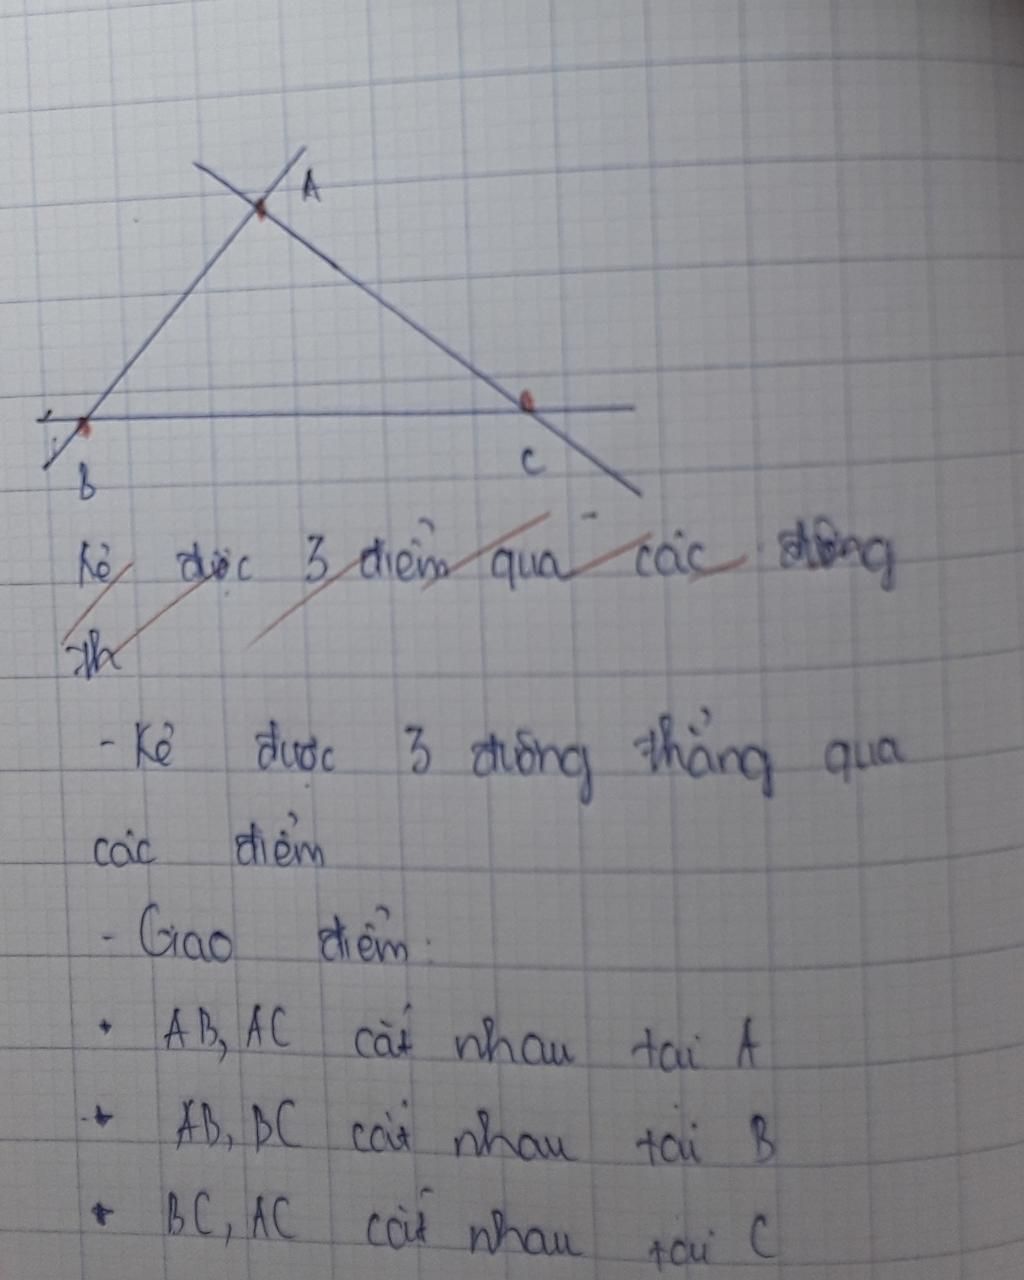 A
B
C
Kẻ được 3 điểm qua các đường
th
- Kẻ được 3 đường thẳng qua
các điểm
- Giao điểm:
+ AB, AC cắt nhau tại A
+ AB, BC cắt nhau tại B
+ BC, AC cắt nhau tại C